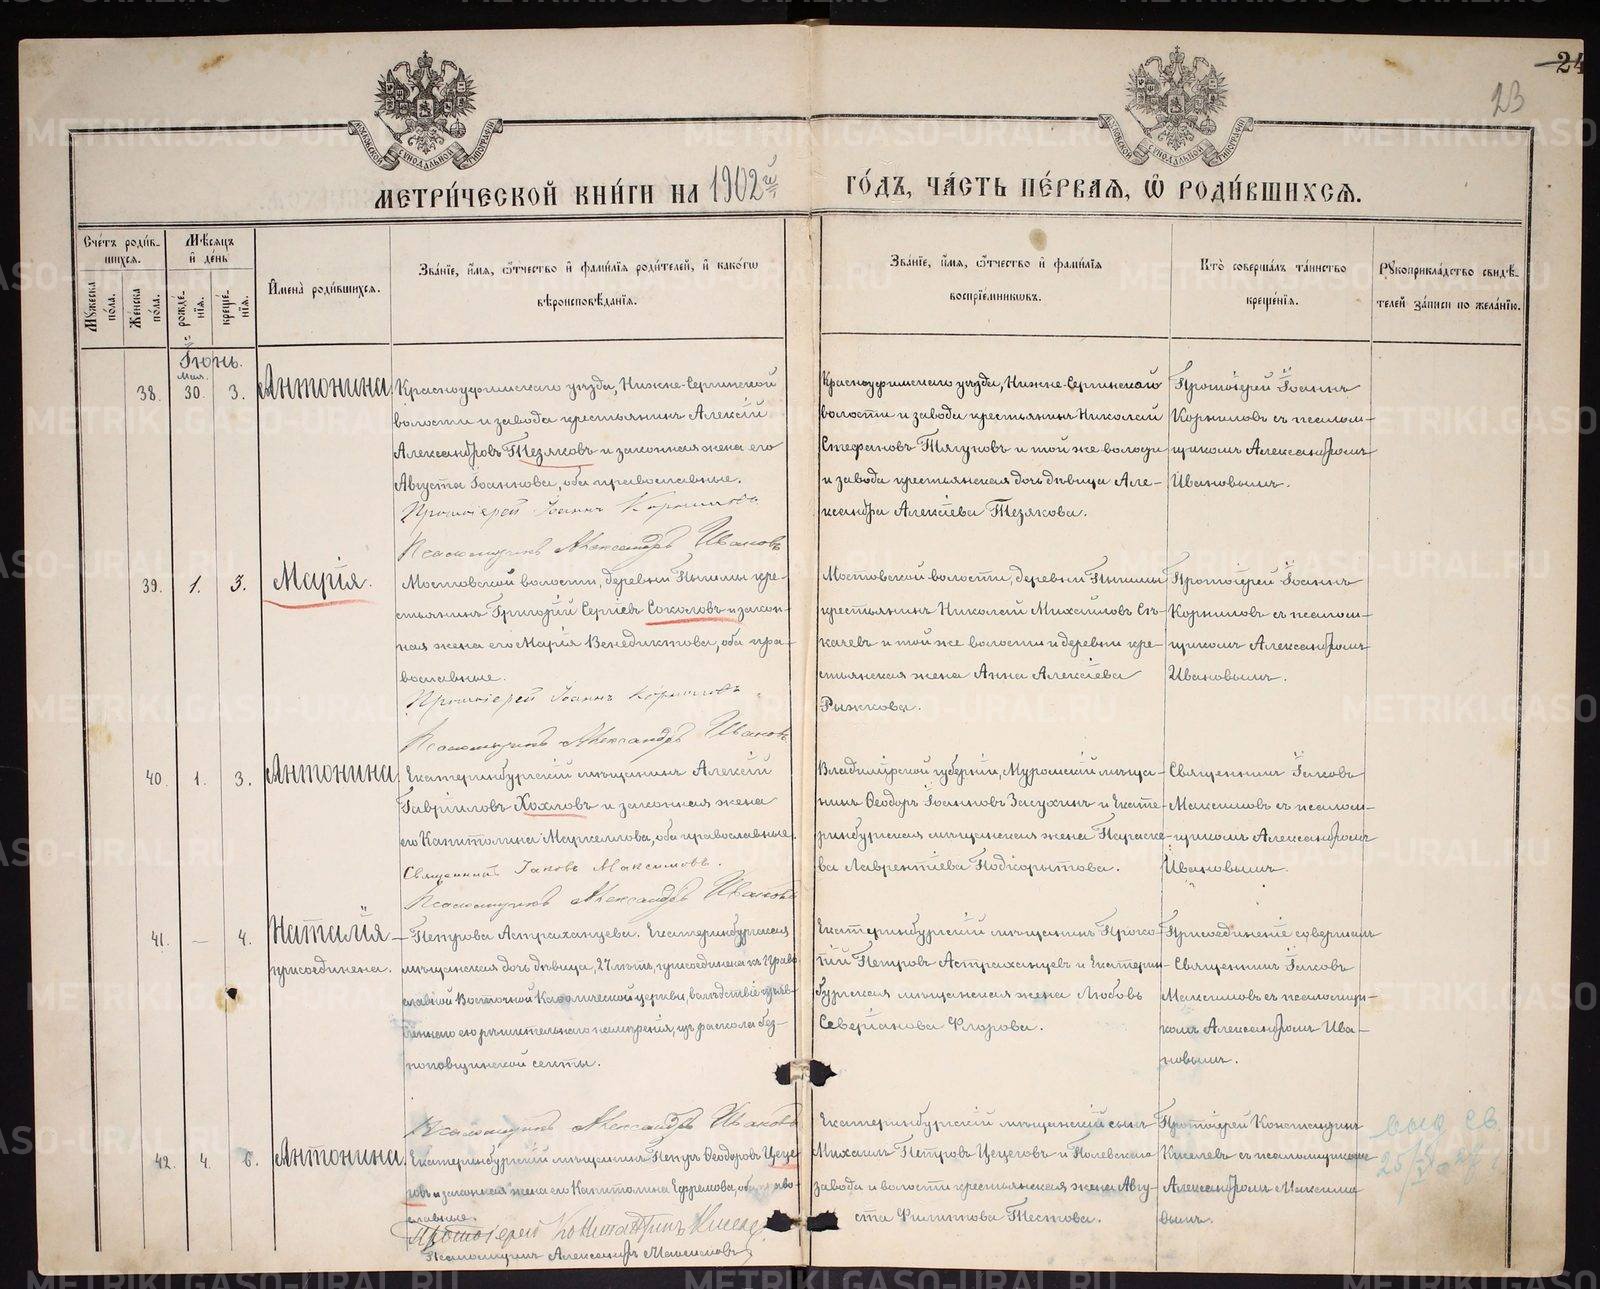 24
23
МЕТРИ́ЧЕСКОЙ КНИ́ГИ НА 1902й
ГО́ДЪ, ЧА́СТЬ ПЕ́РВАѦ, Ѽ РОДИ́ВШИХСѦ.
Сче́тъ роди́в-
шихсѧ.
Мꙋжеска по́ла.
Же́нска по́ла.
Мѣ́сѧцъ
и҆ де́нь
рожде́-
нїѧ.
креще́-
нїѧ.
И҆мена̀ роди́вшихсѧ.
Зва́нїе, и҆́мѧ, ѻ҆́тчество и҆ фами́лїѧ роди́телей, и҆ како́гѡ
вѣроисповѣ́данїѧ.
Зва́нїе, и҆́мѧ, ѻ҆́тчество и҆ фами́лїѧ
воспрїе́мникѡвъ.
Кто̀ соверша́лъ та́инство
креще́нїѧ.
Рꙋкоприкла́дство свидѣ́-
телей за́писи по жела́нїю.
Іюнь.
Мая.
38. 30. 3. Антонина
Красноуфимскаго уѣзда, Нижне-Сергинской
волости и завода крестьянинъ Алексій
Александровъ Тезяковъ и законная жена его
Августа Іоаннова, оба православные.
Протоіерей Іоаннъ Корниловъ
Псаломщикъ Александръ Ивановъ
Красноуфимскаго уѣзда, Нижне-Сергинской
волости и завода крестьянинъ Николай
Стефановъ Тягуновъ и той же волости
и завода крестьянская дочь дѣвица Але-
ксандра Алексіева Тезякова.
Протоіерей Іоаннъ
Корниловъ съ псалом-
щикомъ Александромъ
Ивановымъ.
39. 1. 3. Марія.
Мостовской волости, деревни Пышмы кре-
стьянинъ Григорій Сергіевъ Соколовъ и закон-
ная жена его Марія Венедиктова, оба пра-
вославные.
Протоіерей Іоаннъ Корниловъ
Псаломщикъ Александръ Ивановъ
Мостовской волости, деревни Пышмы
крестьянинъ Николай Михаиловъ Ст-
качевъ и той же волости и деревни кре-
стьянская жена Анна Алексіева
Рыжкова.
Протоіерей Іоаннъ
Корниловъ съ псалом-
щикомъ Александромъ
Ивановымъ.
40. 1. 3. Антонина
Екатеринбургскій мѣщанинъ Алексій
Гавріиловъ Хохловъ и законная жена
его Капитолина Маркеллова, оба православные.
Священникъ Іаковъ Максимовъ.
Псаломщикъ Александръ Ивановъ
Владимірской губерніи, Муромскій мѣща-
нинъ Ѳеодоръ Іоанновъ Засухинъ и Екате-
ринбургская мѣщанская жена Параске-
ва Лаврентіева Подкорытова.
Священникъ Іаковъ
Максимовъ съ псалом-
щикомъ Александромъ
Ивановымъ.
41. — 4. Наталія
присоединена.
Петрова Астраханцева. Екатеринбургская
мѣщанская дочь дѣвица, 27 лѣтъ, присоединена къ Право-
славной Восточной Каѳолической церкви, вслѣдствіе изъяв-
леннаго ею рѣшительнаго намѣренія, изъ раскола без-
поповщинской секты.
Псаломщикъ Александръ Ивановъ
Екатеринбургскій мѣщанинъ Проко-
пій Петровъ Астраханцевъ и Екатерин-
бургская мѣщанская жена Любовь
Северіанова Флорова.
Присоединеніе совершалъ
Священникъ Іаковъ
Максимовъ съ псаломщи-
комъ Александромъ Ива-
новымъ.
42. 4. 6. Антонина.
Екатеринбургскій мѣщанинъ Петръ Ѳеодоровъ Цеце-
говъ и законная жена его Капитолина Ефремова, оба право-
славные.
Протоіерей Константинъ Киселевъ
Псаломщикъ Александръ Максимовъ
Екатеринбургскій мѣщанскій сынъ
Михаилъ Петровъ Цецеговъ и Полевскаго
завода и волости крестьянская жена Авгу-
ста Филиппова Тестова.
Протоіерей Константинъ
Киселевъ съ псаломщикомъ
Александромъ Максимо-
вымъ.
выд св.
METRIKI.GASO-URAL.RU